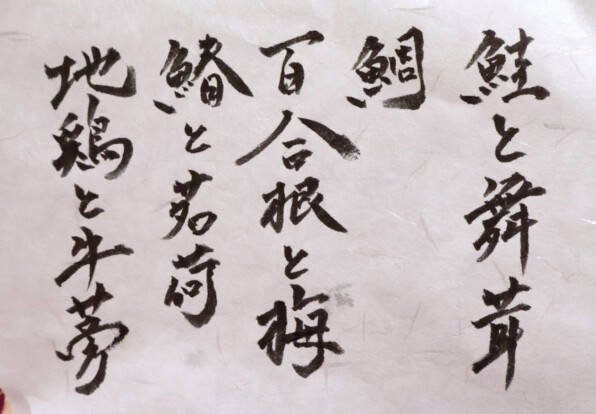 鮭と舞茸
鯛
百合根と梅
鰆と茗荷
地鶏と牛蒡